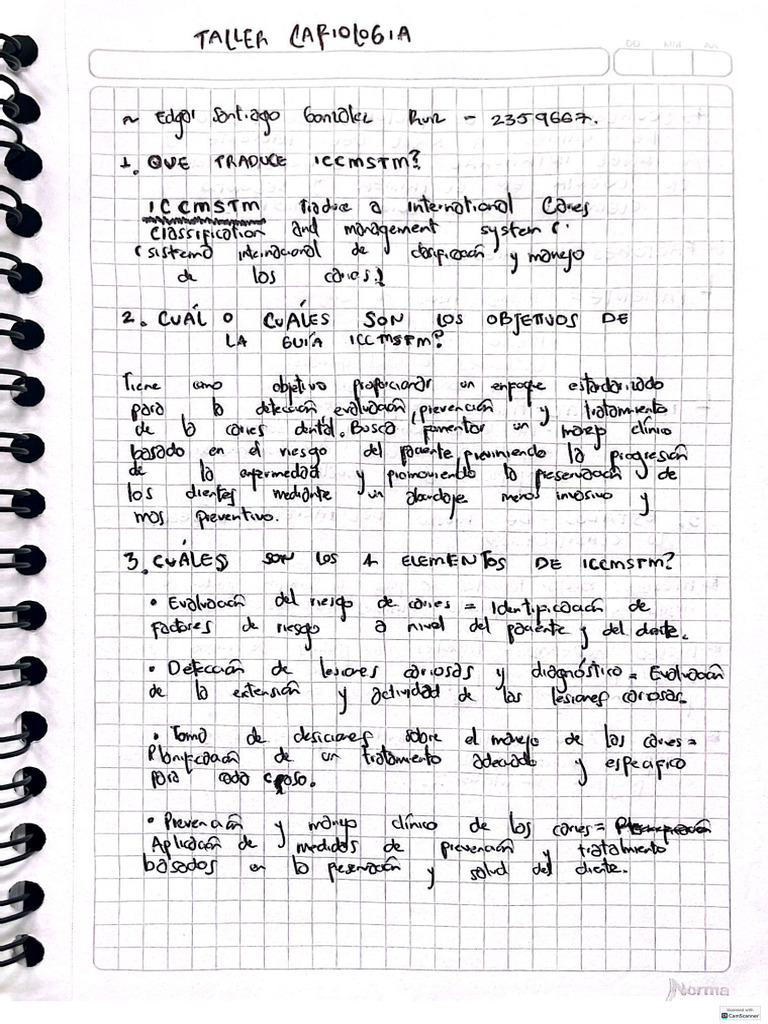 TALLER CARIOLOGIA
~ Edgar Santiago Gonzalez Ruiz - 2359667.
1. QUE TRADUCE ICCMSTM?
ICCMSTM Traduce a international Caries
classification and management system (
(sistema internacional de clasificación y manejo
de los caries)
2. CUÁL O CUÁLES SON LOS OBJETIVOS DE
LA GUÍA ICCMSTM?
Tiene como objetivo proporcionar un enfoque estandarizado
para la detección, evaluación, prevención y tratamiento
de la caries dental. Busca fomentar un manejo clínico
basado en el riesgo del paciente, previniendo la progresión
de la enfermedad y promoviendo la preservación de
los dientes mediante un abordaje menos invasivo y
mas preventivo.
3. CUÁLES SON LOS 4 ELEMENTOS DE ICCMSTM?
• Evaluación del riesgo de caries = Identificación de
factores de riesgo a nivel del paciente y del diente.
• Detección de lesiones cariosas y diagnóstico = Evaluación
de la extensión y actividad de las lesiones cariosas.
• Toma de desiciones sobre el manejo de las caries =
Planificación de un tratamiento adecuado y especifico
para cada caso.
• Prevención y manejo clínico de los caries =
Aplicación de medidas de prevención y tratamiento
basados en la preservación y salud del diente.
Norma
Scanned with
CamScanner